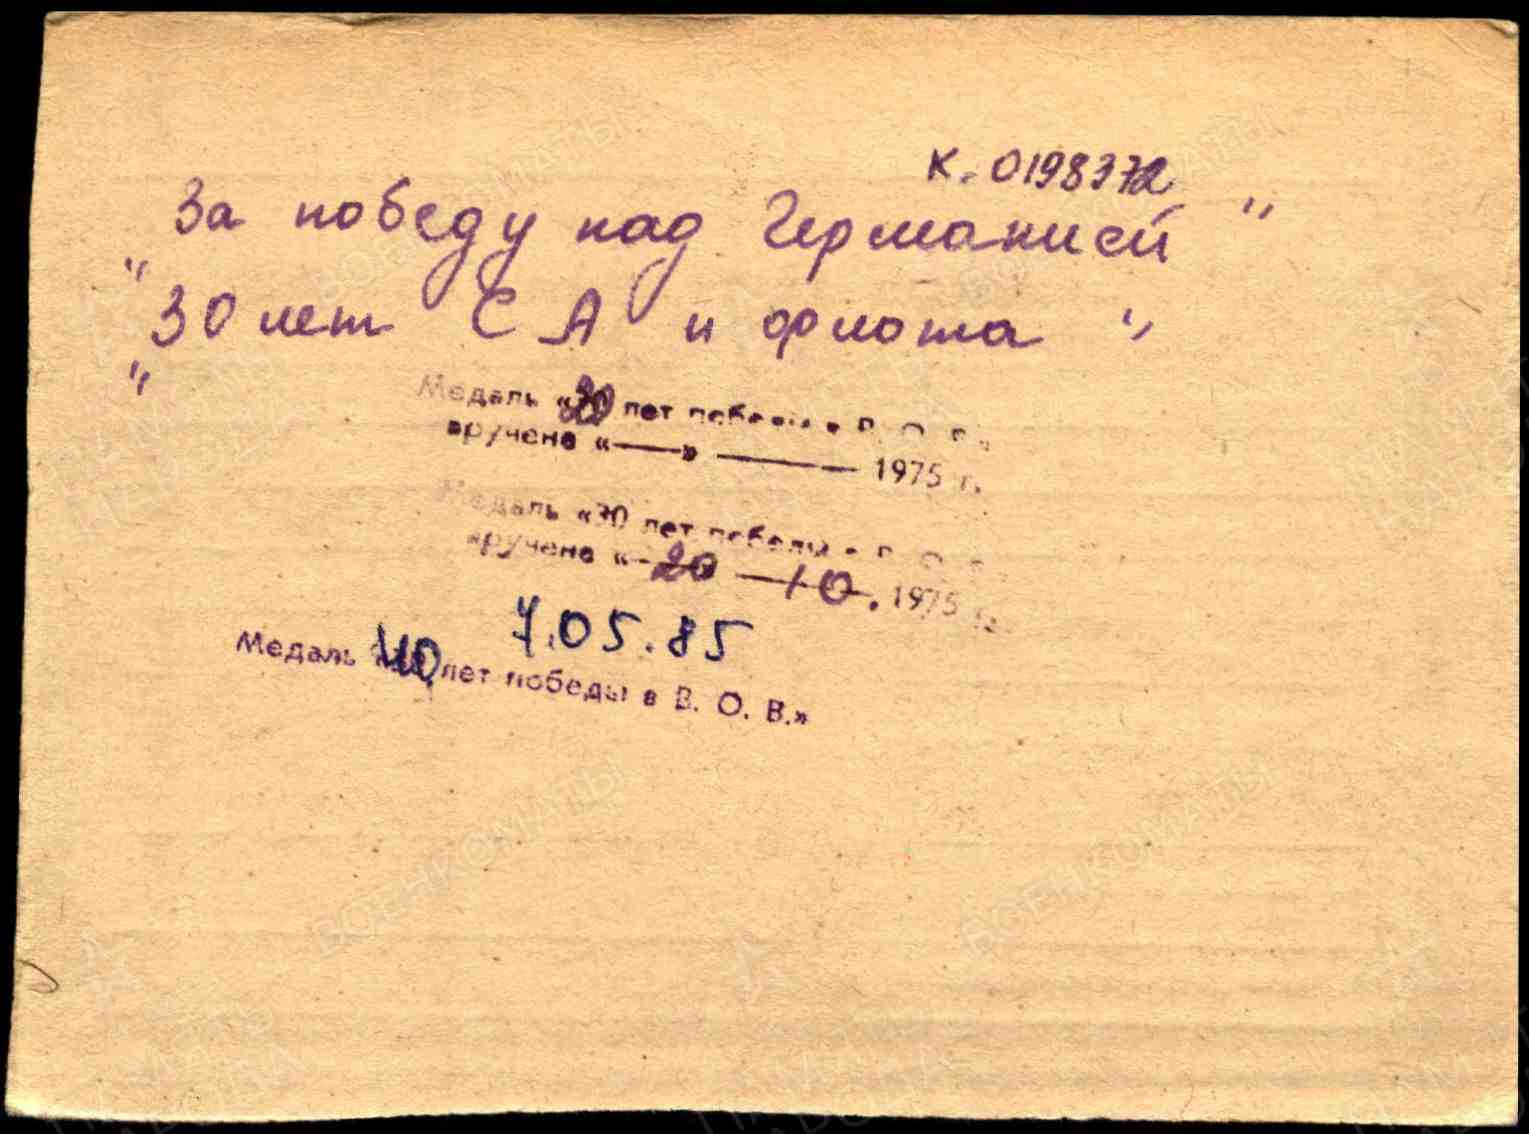 К. 0198372
За победу над Германией "
" 30 лет СА и флота "
"
Медаль «30 лет победы в В. О. В.
вручена «——» ———— 1975 г.
Медаль «30 лет победы в В. О. В.
вручена «20» 10. 1975 г.
7.05.85
Медаль 40 лет победы в В. О. В.»